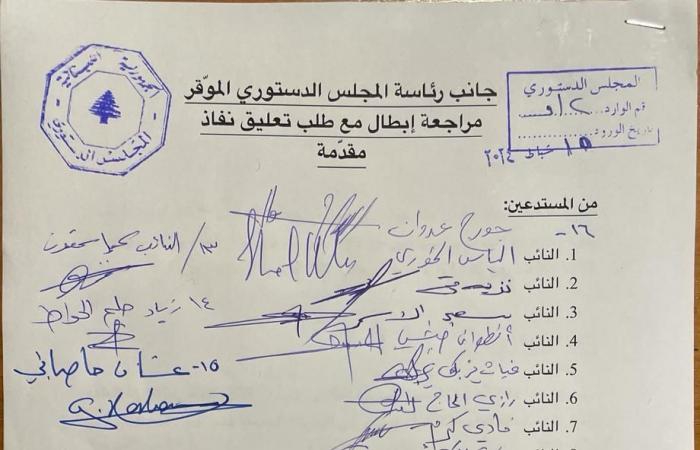 الجمهورية اللبنانية
المجلس الدستوري
جانب رئاسة المجلس الدستوري الموقّر
مراجعة إبطال مع طلب تعليق نفاذ
مقدّمة
المجلس الدستوري
رقم الوارد
تاريخ الورود
١٥ شباط ٢٠٢٤
من المستدعين:
١٦- جورج عدوان
1. النائب الياس الخوري
2. النائب نزيه متى
3. النائب سعيد الاسمر
4. النائب أنطوان حبشي
5. النائب غياث يزبك
6. النائب رازي الحاج
7. النائب فادي كرم
١٣/ النائب
١٤ زياد طلع الحواط
١٥- غسان حاصباني